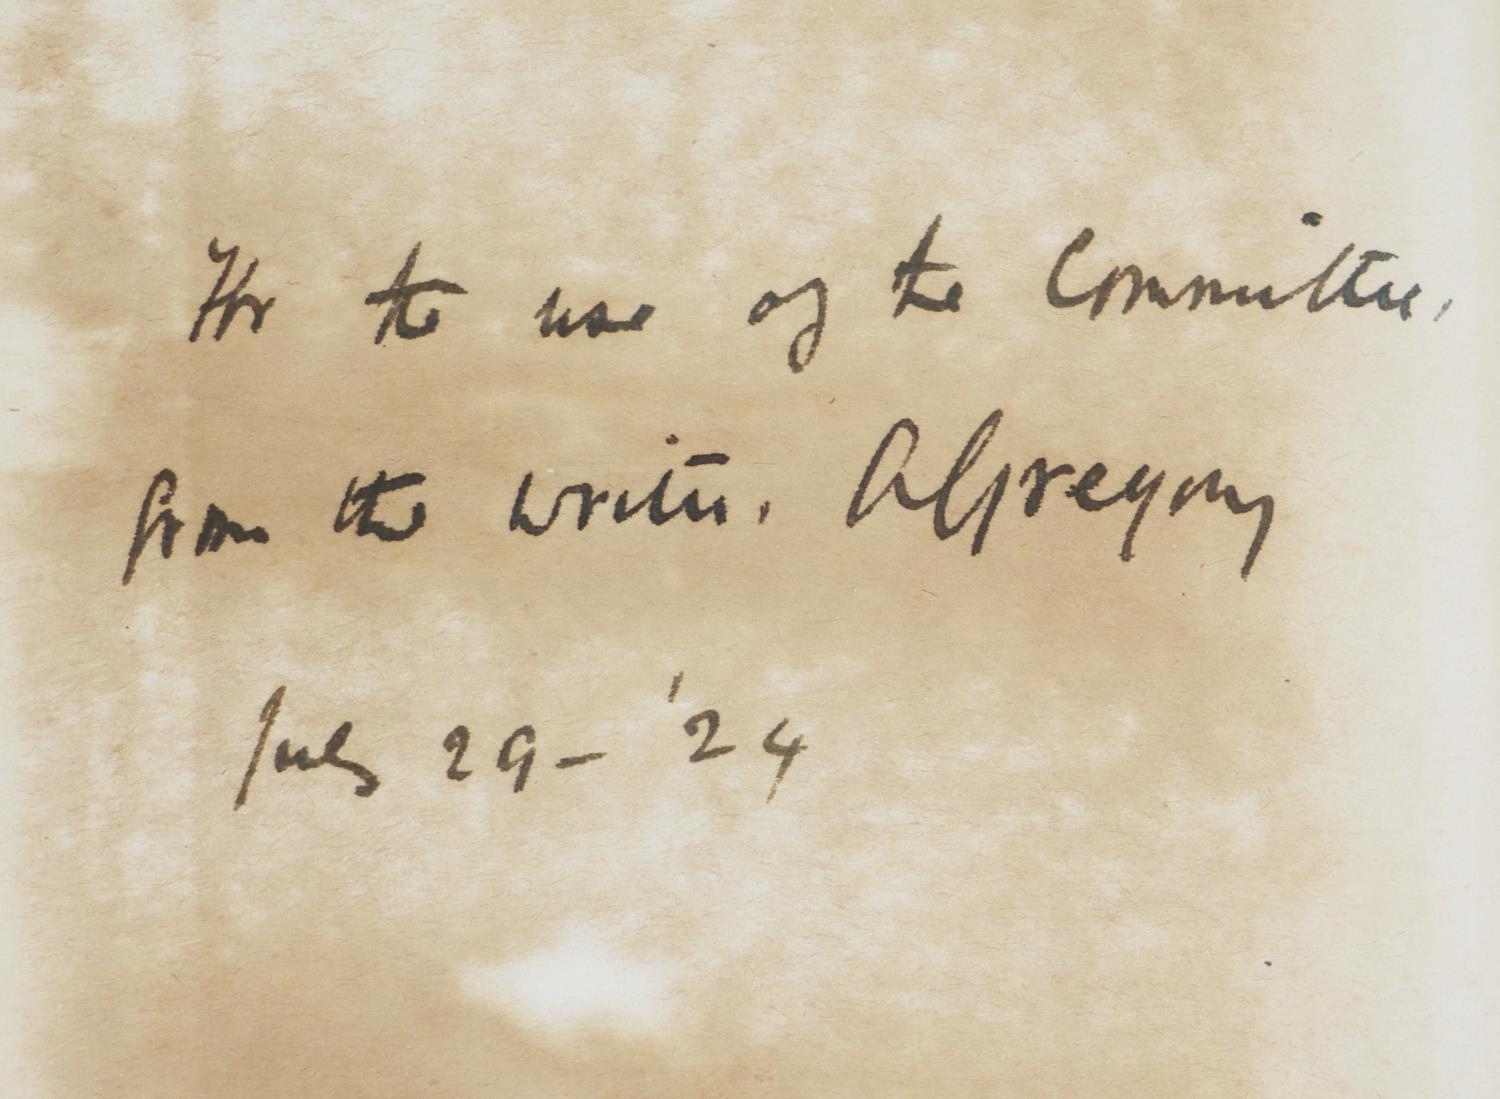 For the use of the Committee,
from the writer. A Gregory
July 29 - '24